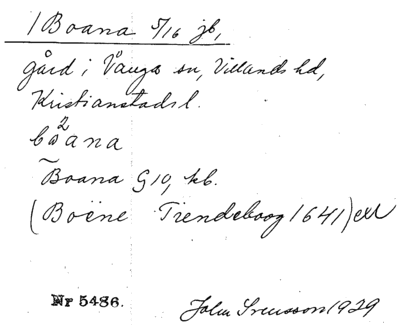 1 Boana 5/16 jb,
gård i Vånga sn, Villands hd,
Kristianstads l.
bo²ana
~Boana G10, kb.
(Boëne Trendeboog 1641) exl
Nr 5486.
John Svensson 1929